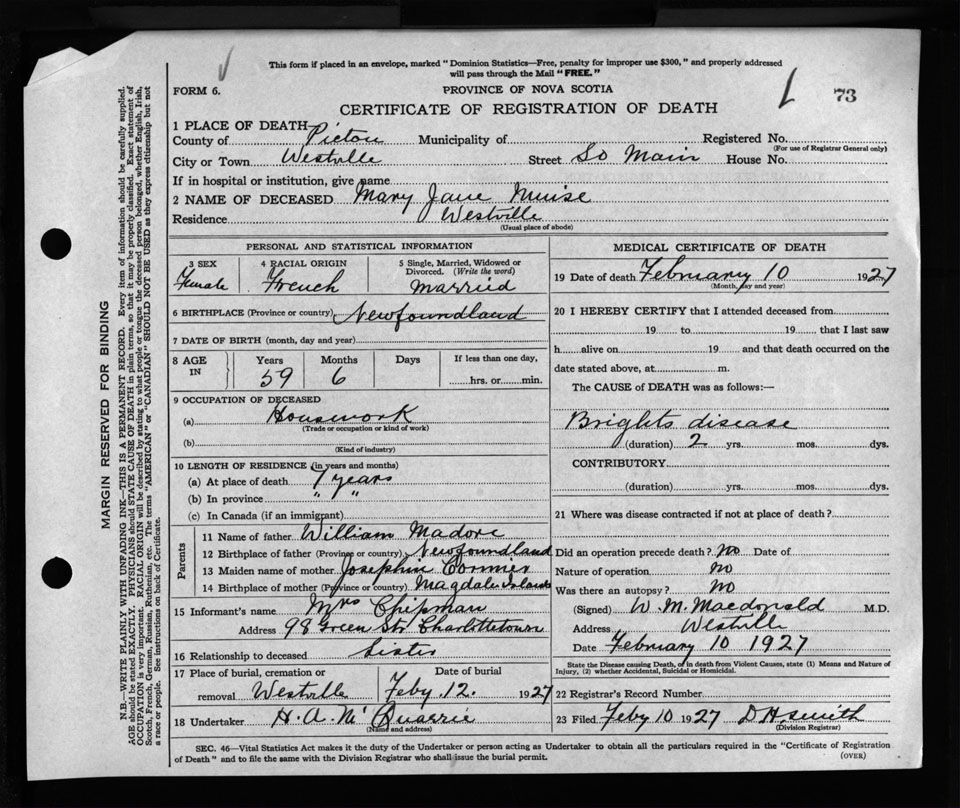 This form if placed in an envelope, marked "Dominion Statistics—Free, penalty for improper use $300," and properly addressed
will pass through the Mail "FREE."
FORM 6.
PROVINCE OF NOVA SCOTIA
73
CERTIFICATE OF REGISTRATION OF DEATH
1 PLACE OF DEATH
County of Pictou Municipality of Registered No.
(For use of Registrar General only)
City or Town Westville Street So Main House No.
If in hospital or institution, give name
2 NAME OF DECEASED Mary Jane Muise
Residence Westville
(Usual place of abode)
PERSONAL AND STATISTICAL INFORMATION
3 SEX Female
4 RACIAL ORIGIN French
5 Single, Married, Widowed or Divorced. (Write the word) Married
6 BIRTHPLACE (Province or country) Newfoundland
7 DATE OF BIRTH (month, day and year)
8 AGE IN Years 59 Months 6 Days If less than one day, hrs. or min.
9 OCCUPATION OF DECEASED
(a) Housework
(Trade or occupation or kind of work)
(b)
(Kind of industry)
10 LENGTH OF RESIDENCE (in years and months)
(a) At place of death 7 years
(b) In province " "
(c) In Canada (if an immigrant)
Parents
11 Name of father William Madore
12 Birthplace of father (Province or country) Newfoundland
13 Maiden name of mother Josephin Cormier
14 Birthplace of mother (Province or country) Magdalen Islands
15 Informant's name Mrs Chipman
Address 98 Green Str Charlottetown
16 Relationship to deceased Sister
17 Place of burial, cremation or removal Westville
Date of burial Feby 12. 1927
18 Undertaker H. A. Mc Quarrie
(Name and address)
MEDICAL CERTIFICATE OF DEATH
19 Date of death February 10 1927
(Month, day and year)
20 I HEREBY CERTIFY that I attended deceased from
19 to 19 that I last saw
h alive on 19 and that death occurred on the
date stated above, at m.
The CAUSE of DEATH was as follows:—
Brights disease
(duration) 2 yrs. mos. dys.
CONTRIBUTORY
(duration) yrs. mos. dys.
21 Where was disease contracted if not at place of death?
Did an operation precede death? no Date of
Nature of operation no
Was there an autopsy? no
(Signed) W. M. Macdonald M.D.
Address Westville
Date February 10 1927
State the Disease causing Death, or in death from Violent Causes, state (1) Means and Nature of
Injury, (2) whether Accidental, Suicidal or Homicidal.
22 Registrar's Record Number
23 Filed Feby 10 1927 D H. Smith
(Division Registrar)
SEC. 46—Vital Statistics Act makes it the duty of the Undertaker or person acting as Undertaker to obtain all the particulars required in the "Certificate of Registration
of Death" and to file the same with the Division Registrar who shall issue the burial permit.
(OVER)
MARGIN RESERVED FOR BINDING
N.B.—WRITE PLAINLY WITH UNFADING INK—THIS IS A PERMANENT RECORD. Every item of information should be carefully supplied.
AGE should be stated EXACTLY. PHYSICIANS should STATE CAUSE OF DEATH in plain terms, so that it may be properly classified. Exact statement of
OCCUPATION is very important. RACIAL ORIGIN will be described by stating to what people or tongue the deceased person belonged, whether English, Irish,
Scotch, French, German, Russian, Ruthenian, etc. The terms "AMERICAN" or "CANADIAN" SHOULD NOT BE USED as they express citizenship but not
a race or people. See instructions on back of Certificate.